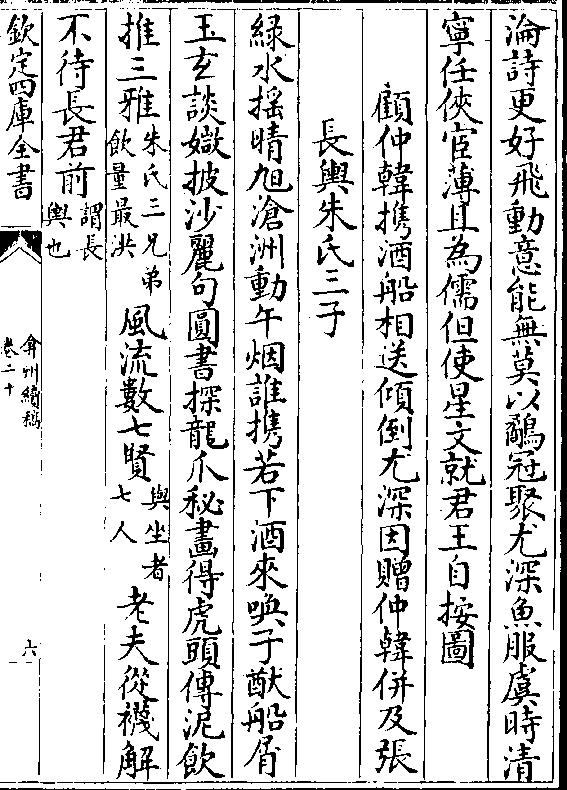 淪詩更好飛動意能無莫以鷸冠聚尤深魚服虞時清
寧任俠宦薄且為儒但使星文就君王自按圖
顧仲韓携酒船相送傾倒尤深因贈仲韓併及張
長輿朱氏三子
緑水揺晴旭滄洲動午烟誰携若下酒來喚子猷船屑
玉玄談嶽披沙麗句圓書探龍爪秘畫得虎頭傳泥飲
推三雅朱氏三兄弟飲量最洪風流數七賢與坐者七人老夫從襪解
不待長君前謂長輿也
欽定四庫全書
弇州續稿
卷二十
六